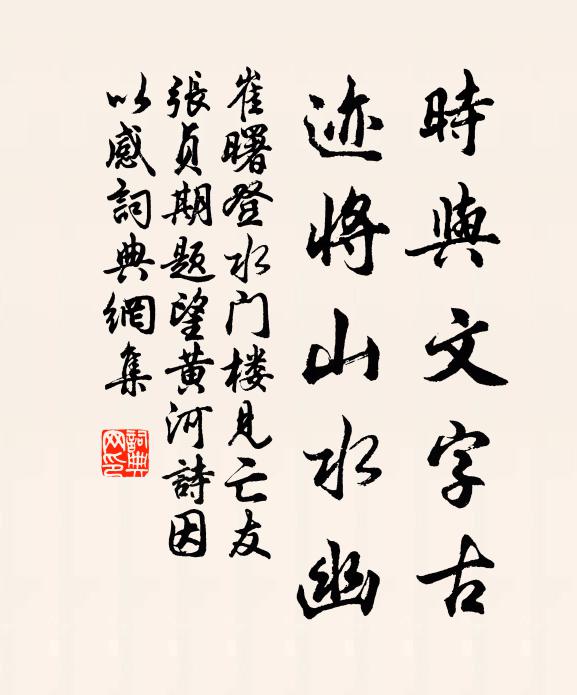 時與文字古
迹將山水幽
崔曙登水门楼見亡友
張貞期题望黄河詩因
以感詞典網集
詞典网印